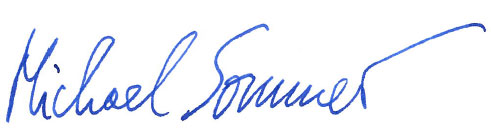 Michael Sommer